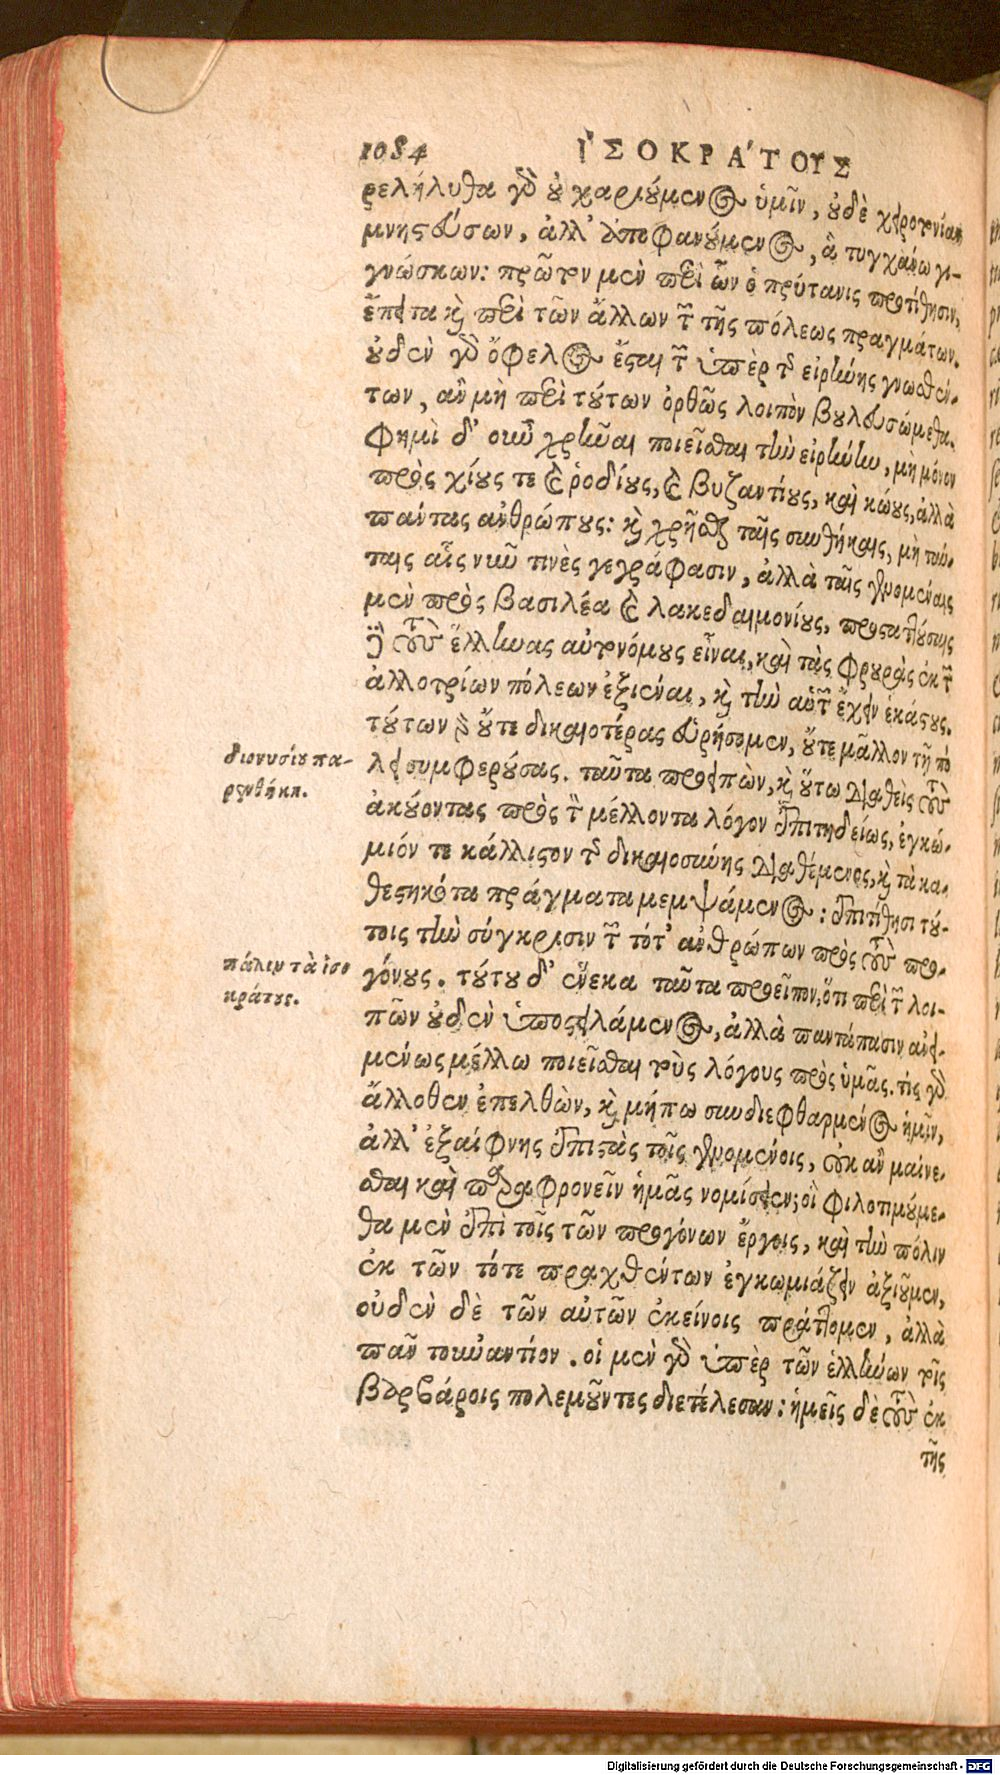 1084 ἸΣΟΚΡΆΤΟΥΣ
ρελήλυθα γὸ οὐ χαριούμενος ὑμῖν, οὐδὲ χειροτονίαν
μνηστεύσων, ἀλλ' ἀποφανούμενος, ἃ τυγχάνω γι-
γνώσκων: πρῶτον μὲν περὶ ὧν ὁ πρύτανις προτίθησιν,
ἔπειτα καὶ περὶ τῶν ἄλλων τῶν τῆς πόλεως πραγμάτων.
οὐδὲν γὸ ὄφελος ἔσται τῶν ὑπὲρ τῆς εἰρήνης γνωσθέν-
των, ἂν μὴ περὶ τούτων ὀρθῶς λοιπὸν βουλευσώμεθα.
Φημὶ δ' οὖν χρῆναι ποιεῖσθαι τὴν εἰρήνην, μὴ μόνον
πρὸς χίους τε καὶ ῥοδίους, καὶ βυζαντίους, καὶ κώους, ἀλλὰ
πάντας ἀνθρώπους: καὶ χρῆσθαι ταῖς συνθήκαις, μὴ ταύ-
ταις αἷς νῦν τινὲς γεγράφασιν, ἀλλὰ ταῖς γενομέναις
μὲν πρὸς βασιλέα καὶ λακεδαιμονίους, προσταττούσαις
δὲ τοὺς ἕλληνας αὐτονόμους εἶναι, καὶ τὰς φρουρὰς ἐκ τῶν
ἀλλοτρίων πόλεων ἐξιέναι, καὶ τὴν αὑτῶν ἔχειν ἑκάστους.
τούτων γὸ οὔτε δικαιοτέρας εὑρήσομεν, οὔτε μᾶλλον τῇ πό
διονυσίου πα-
ρενθήκη.
λει συμφερούσας. ταῦτα προειπὼν, καὶ οὕτω διαθεὶς τοὺς
ἀκούοντας πρὸς τὸν μέλλοντα λόγον ἐπιτηδείως, ἐγκώ-
μιόν τε κάλλιστον τῆς δικαιοσύνης διαθέμενος, καὶ τὰ κα-
θεστηκότα πράγματα μεμψάμενος: ἐπιτίθησι τού-
τοις τὴν σύγκρισιν τῶν τότ' ἀνθρώπων πρὸς τοὺς προ-
πάλιν τὰ ἰσο
κράτους.
γόνους. τούτου δ' ἕνεκα ταῦτα προεῖπον, ὅτι περὶ τῶν λοι-
πῶν οὐδὲν ὑποστειλάμενος, ἀλλὰ παντάπασιν ἀνει-
μένως μέλλω ποιεῖσθαι τοὺς λόγους πρὸς ὑμᾶς. τίς γὸ
ἄλλοθεν ἐπελθὼν, καὶ μήπω συνδιεφθαρμένος ἡμῖν,
ἀλλ' ἐξαίφνης ἐπιστὰς τοῖς γενομένοις, οὐκ ἂν μαίνε-
σθαι καὶ παραφρονεῖν ἡμᾶς νομίσειεν; οἳ φιλοτιμούμε-
θα μὲν ἐπὶ τοῖς τῶν προγόνων ἔργοις, καὶ τὴν πόλιν
ἐκ τῶν τότε πραχθέντων ἐγκωμιάζειν ἀξιοῦμεν,
οὐδὲν δὲ τῶν αὐτῶν ἐκείνοις πράττομεν, ἀλλὰ
πᾶν τοὐναντίον. οἱ μὲν γὸ ὑπὲρ τῶν ἑλλήνων τοῖς
βαρβάροις πολεμοῦντες διετέλεσαν: ἡμεῖς δὲ τοὺς ἐκ
τῆς
Digitalisierung gefördert durch die Deutsche Forschungsgemeinschaft - DFG